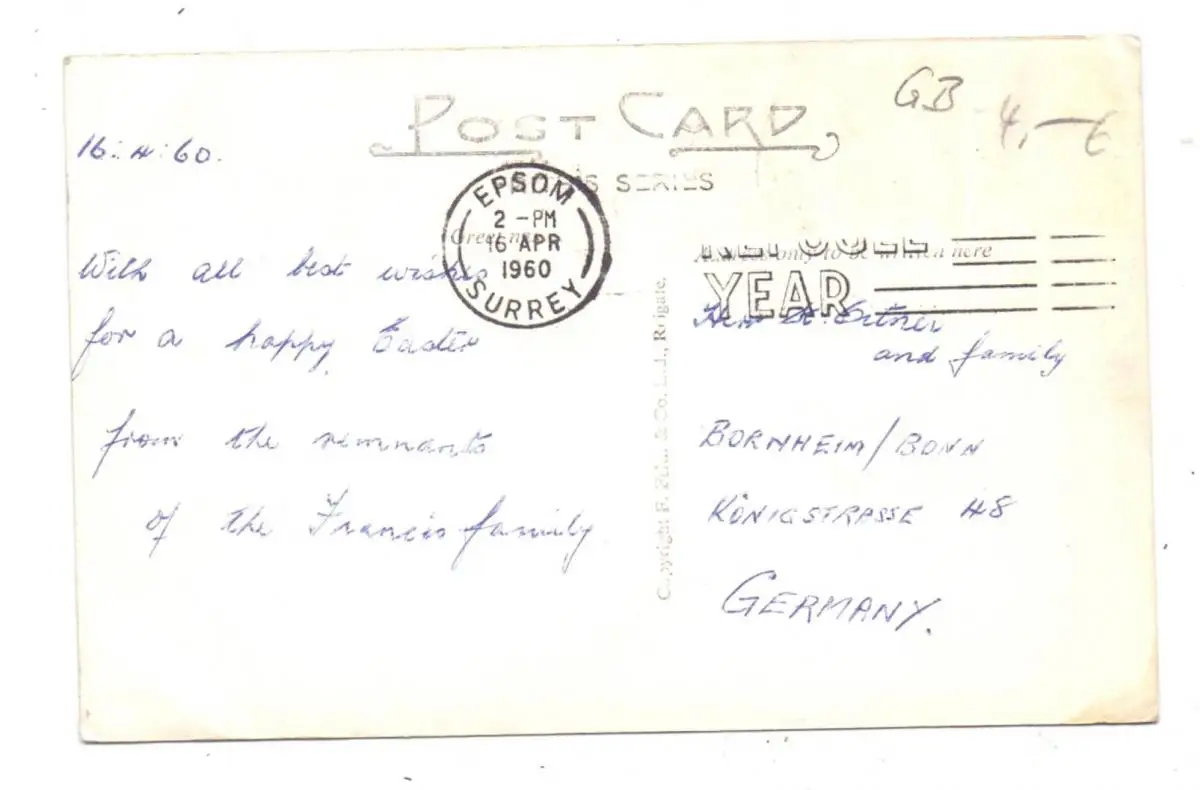 GB 4,— €
POST CARD
16:4:60.
SERIES
EPSOM
2 - PM
16 APR
1960
SURREY
REFUGEE
YEAR
Address only to be written here
With all best wishes
for a happy Easter
from the remnants
of the Francis family
Copyright F. & Co. Ltd., Reigate.
Herr
and family
BORNHEIM/BONN
KÖNIGSTRASSE 48
GERMANY.